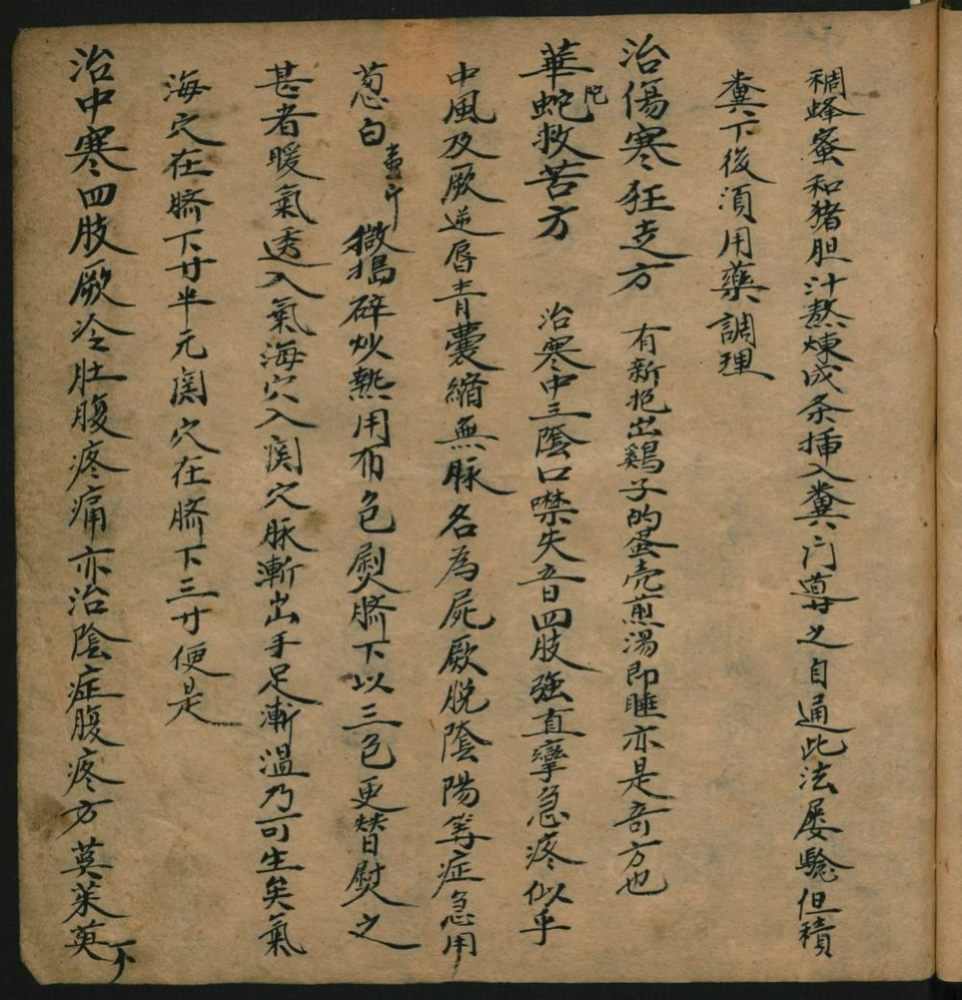 稠蜂蜜和猪胆汁熬煉成条揷入糞门導之自通此法屡驗但積
糞下後須用藥調理
治傷寒狂走方 有新抱出鷄子的蛋壳煎湯即睡亦是奇方也
華蛇陀救苦方 治寒中三陰口噤失音四肢強直攣急疼似乎
中風及厥逆唇青囊縮無脉名為屍厥脱陰陽等症急用
葱白壹斤 微搗碎炒熱用布包熨臍下以三包更替熨之
甚者暖氣透入氣海穴入関穴脉漸出手足漸温乃可生矣氣
海穴在臍下寸半元関穴在臍下三寸便是
治中寒四肢厥冷肚腹疼痛亦治陰症腹疼方 茱萸下